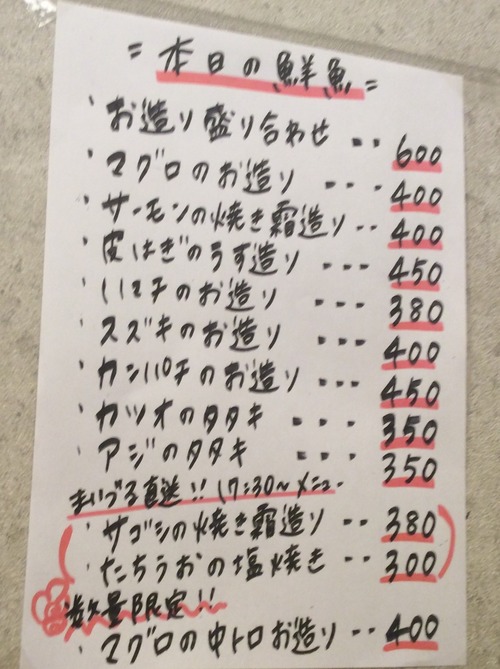 = 本日の鮮魚 =
・お造り盛り合わせ -- 600
・マグロのお造り --- 400
・サーモンの焼き霜造り -- 400
・皮はぎのうす造り --- 450
・ハマチのお造り --- 380
・スズキのお造り --- 400
・カンパチのお造り --- 450
・カツオのタタキ --- 350
・アジのタタキ --- 350
まいづる直送!! 17:30〜メニュー
・サゴシの焼き霜造り -- 380
・たちうおの塩焼き -- 300
数量限定!!
・マグロの中トロお造り -- 400